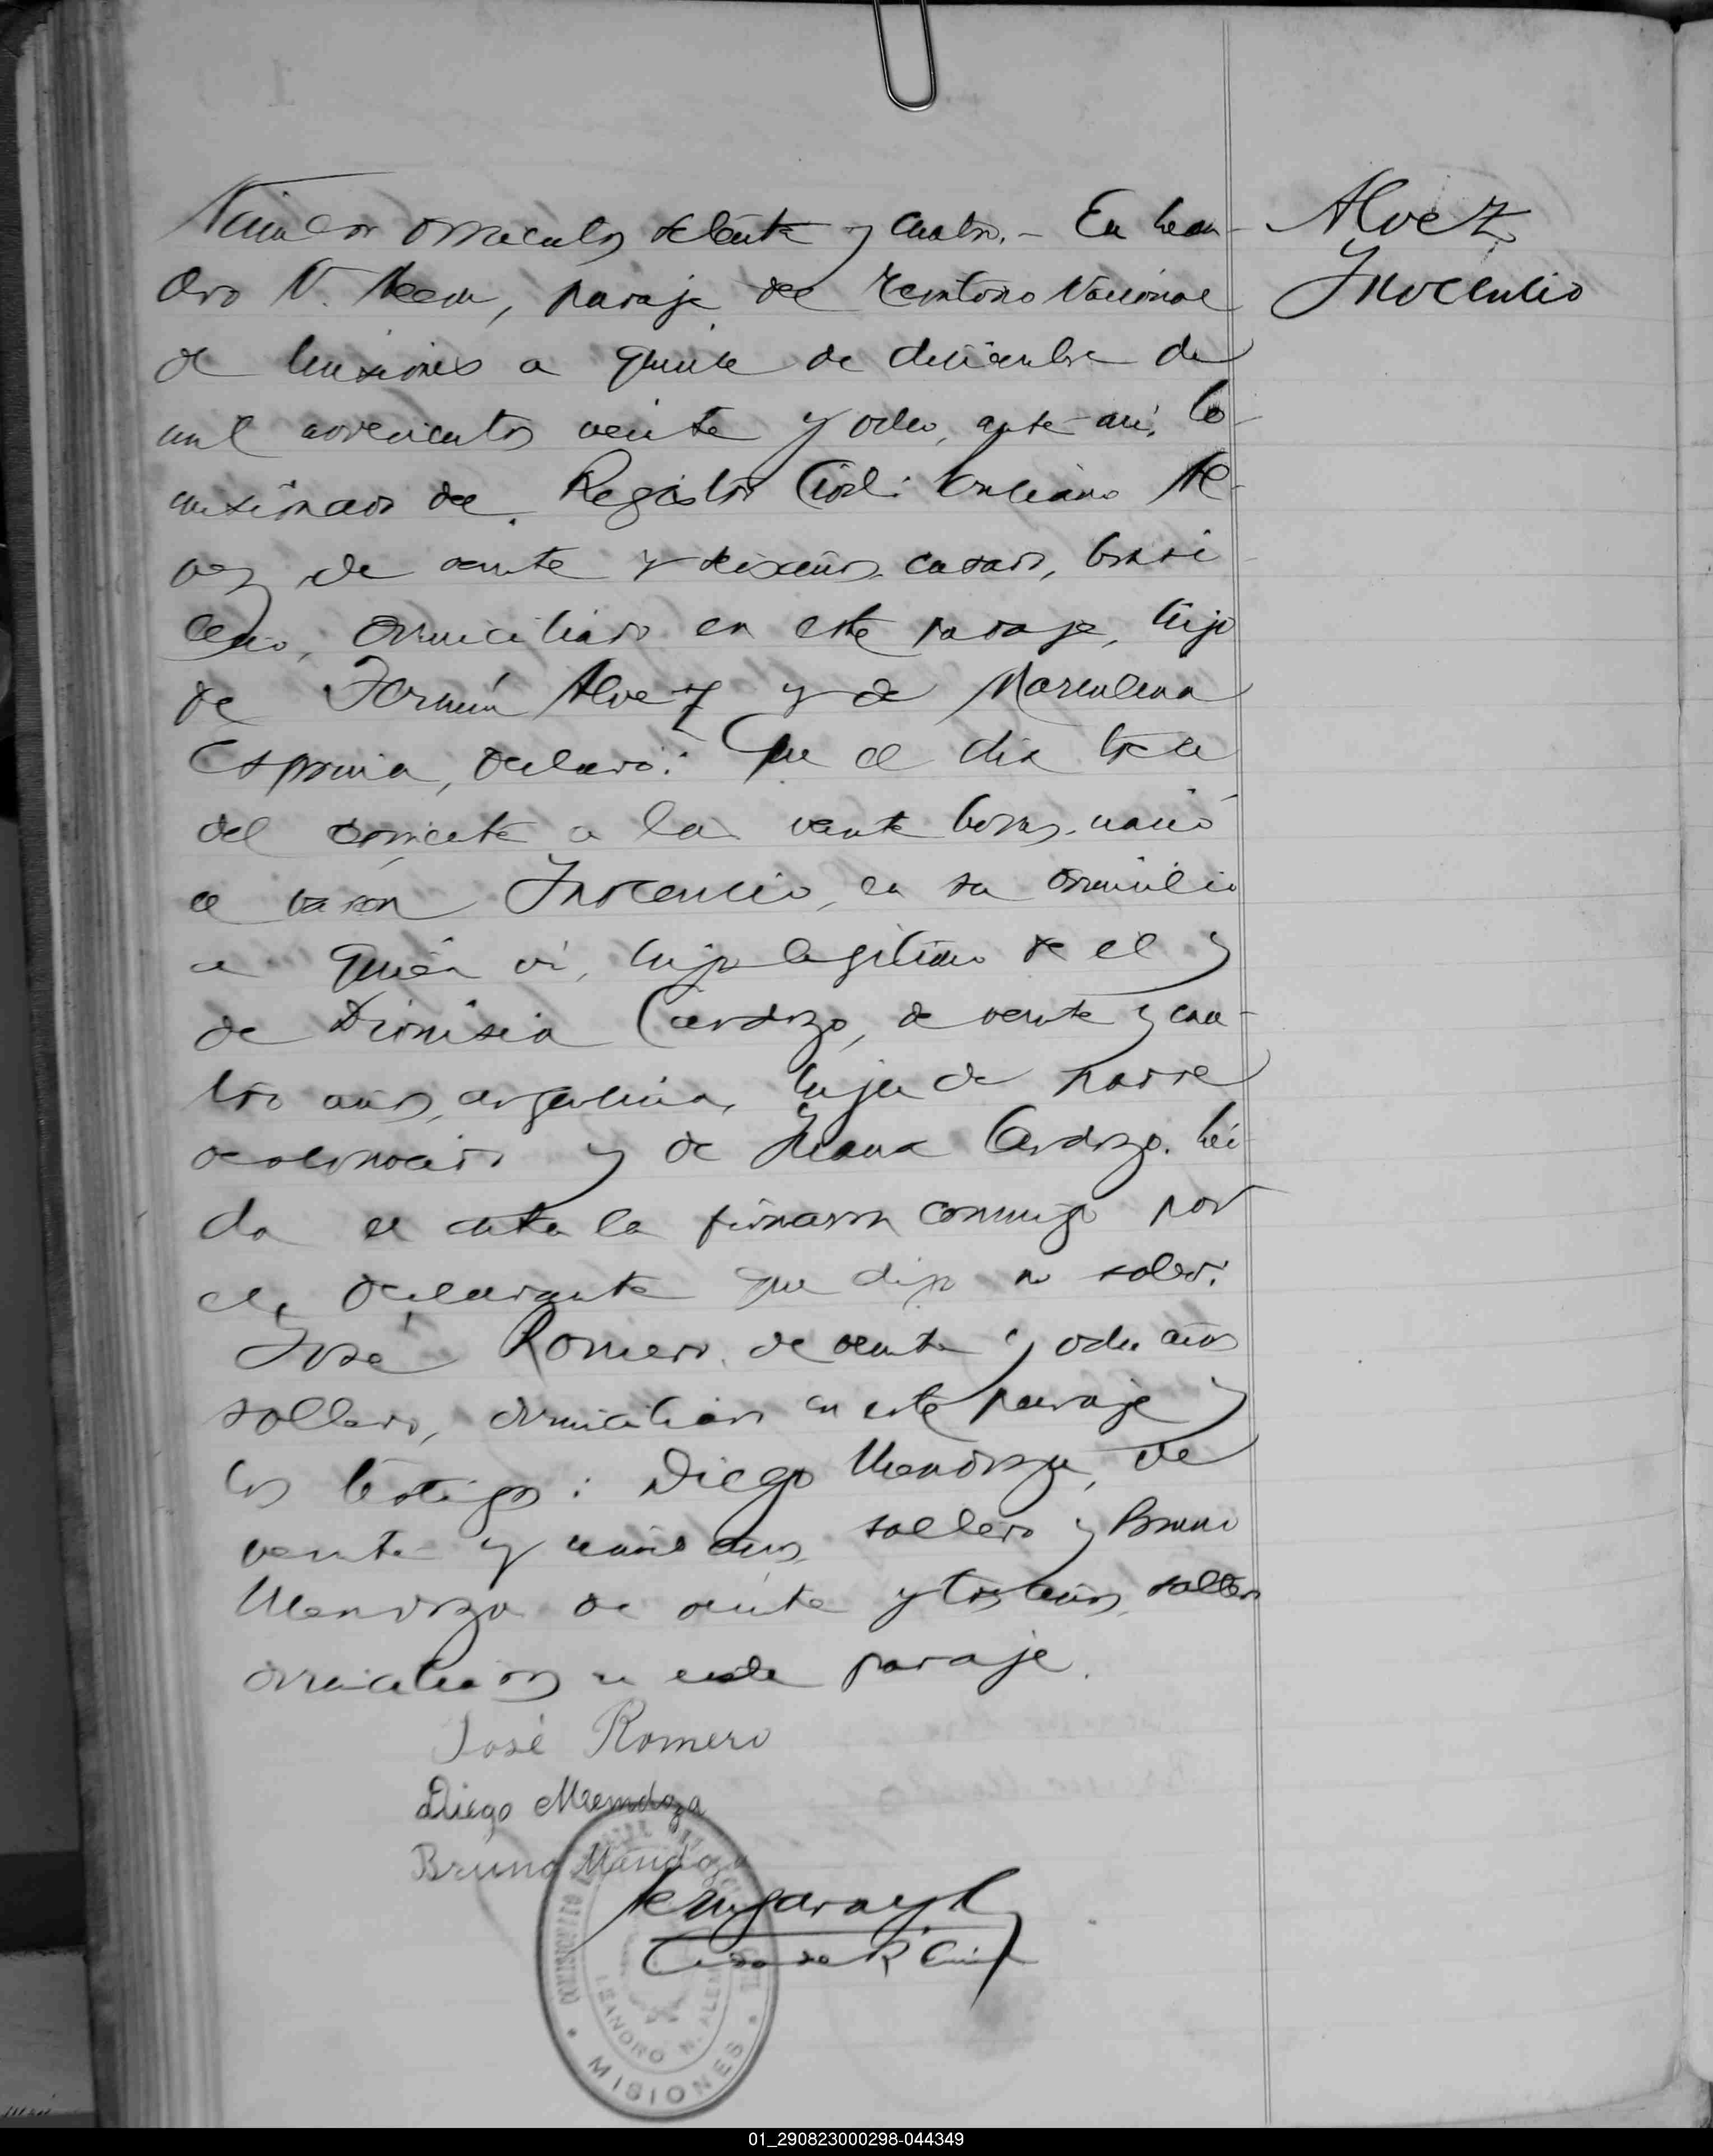 Número doscientos setenta y cuatro.- En Lean-
dro N. Alem, paraje del Territorio Nacional
de Misiones a quince de diciembre de
mil novecientos veinte y ocho, ante mi, Co-
misionado del Registro Civil: Al-
vez de veinte y seis años, casado, brasi
lero, domiciliado en este paraje, hijo
de Fermín Alvez y de
declaró: Que el dia trece
del corriente a las veinte horas, nació
el varón Inocencio, en su domicilio
a quién ví, hijo legitimo de el y
de Dionisia Cardozo, de veinte y cua-
tro años, argentina, hija de padre
desconocido y de Juana Cardozo. Lei-
da el acta la firmaron conmigo por
el declarante que dijo no saber:
José Romero, de veinte y ocho años
soltero, domiciliado en este paraje y
los testigos: Diego Mendoza, de
veinte y años, soltero y Bruno
Mendoza de veinte y tres años, soltero
domiciliados en este paraje.
José Romero
Diego Mendoza
Bruno Mendoza
LEANDRO N. ALEM
MISIONES
Alvez
Inocencio
01_290823000298-044349